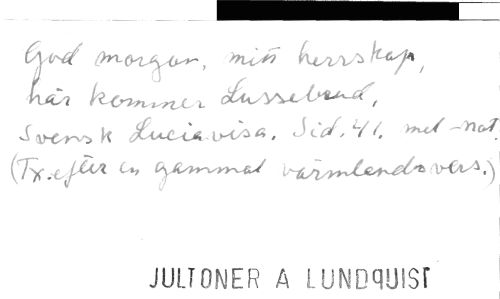 God morgon, mitt herrskap,
här kommer Lussebrud,
Svensk Luciavisa. Sid. 41. mel-not.
(Tx. efter en gammal värmlandsvers.)
JULTONER A LUNDQUIST